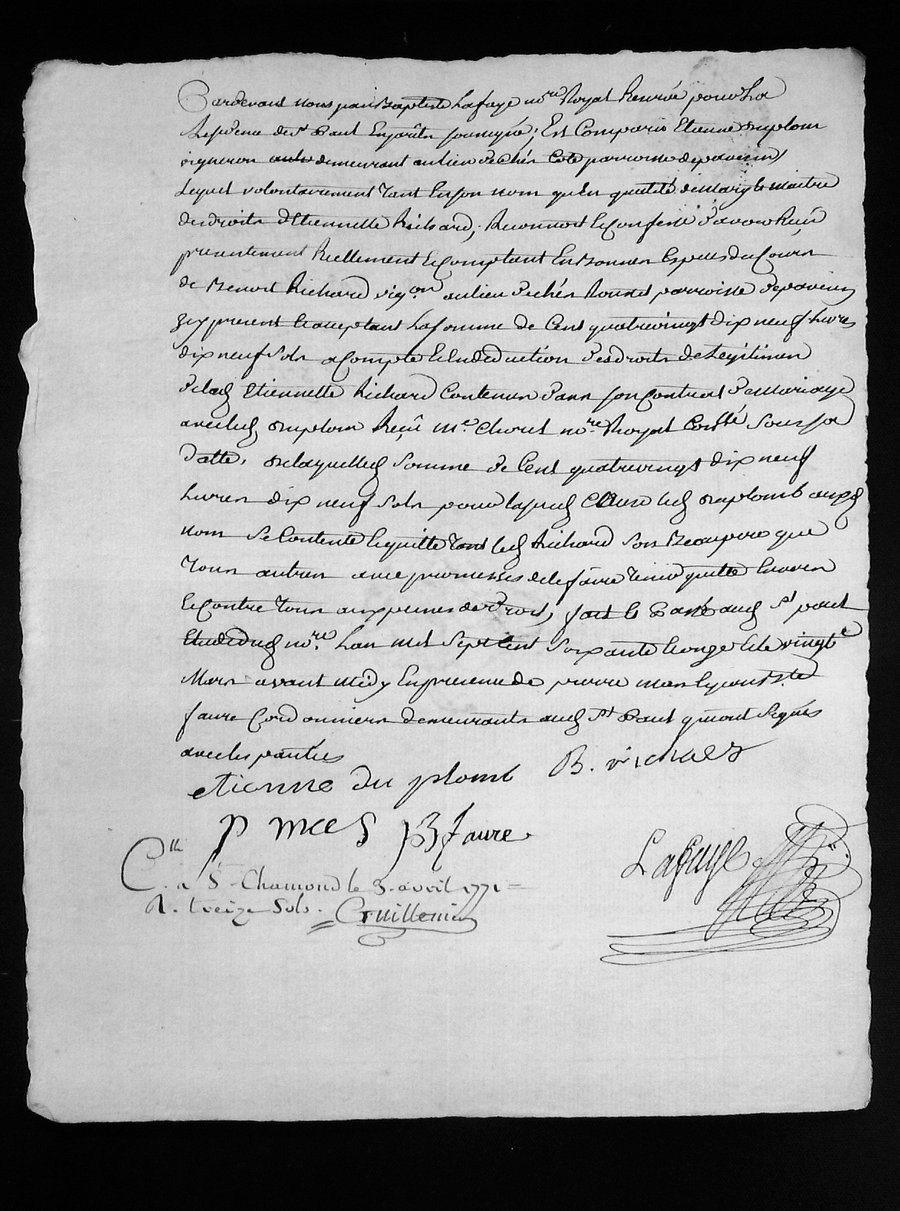 Pardevant nous jean Baptiste Lafaye no.re Royal Reservé pour La
Residence de st. Paul En jarêts soussigné; Est Comparu Etienne duplom
vigneron demeurant au lieu de chés Cote parroisse depavezin
Lequel volontairement tant En son nom qu'En qualité de Mary & maitre
des droits d'Etiennette Richard, Reconnoit & Confesse d'avoir Reçû
presentement Réellement & Comptant En Bonnes Especes du Cours
de Benoit Richard vig.on au lieu de chés parroisse de pavezin
icy present & acceptant La somme de Cent quatrevingt dix neuf Livres
dix neuf sols a Compte & En deduction des droits de Legitimes
de lad. Etiennette Richard Contenus dans son Contrat de Mariage
avec led. duplom Reçû M.e no.re Royal sous sa
datte, de laquelle somme de Cent quatrevingt dix neuf
Livres dix neuf sols pour led. duplomb auxd.
nom se Contente & quitte tant led. Richard son Beaupere que
tous autres avec promesses de le faire tenir quitte Envers
& Contre tous aux peines de droit, fait & Passé aud. St. paul
Etude dud. no.re Lan mil sept Cent soixante & onze & le vingt
Mars avant Midy En presence de pierre Mas & jean Bte
faure Cordonniers demeurants aud. St. Paul qui ont signés
avec les parties
etienne du plomb B. richard
p mas JB faure.
Lafaye
C.lle
C. a St. Chamond le 3. avril 1771
R. treize Sols. Guillemin